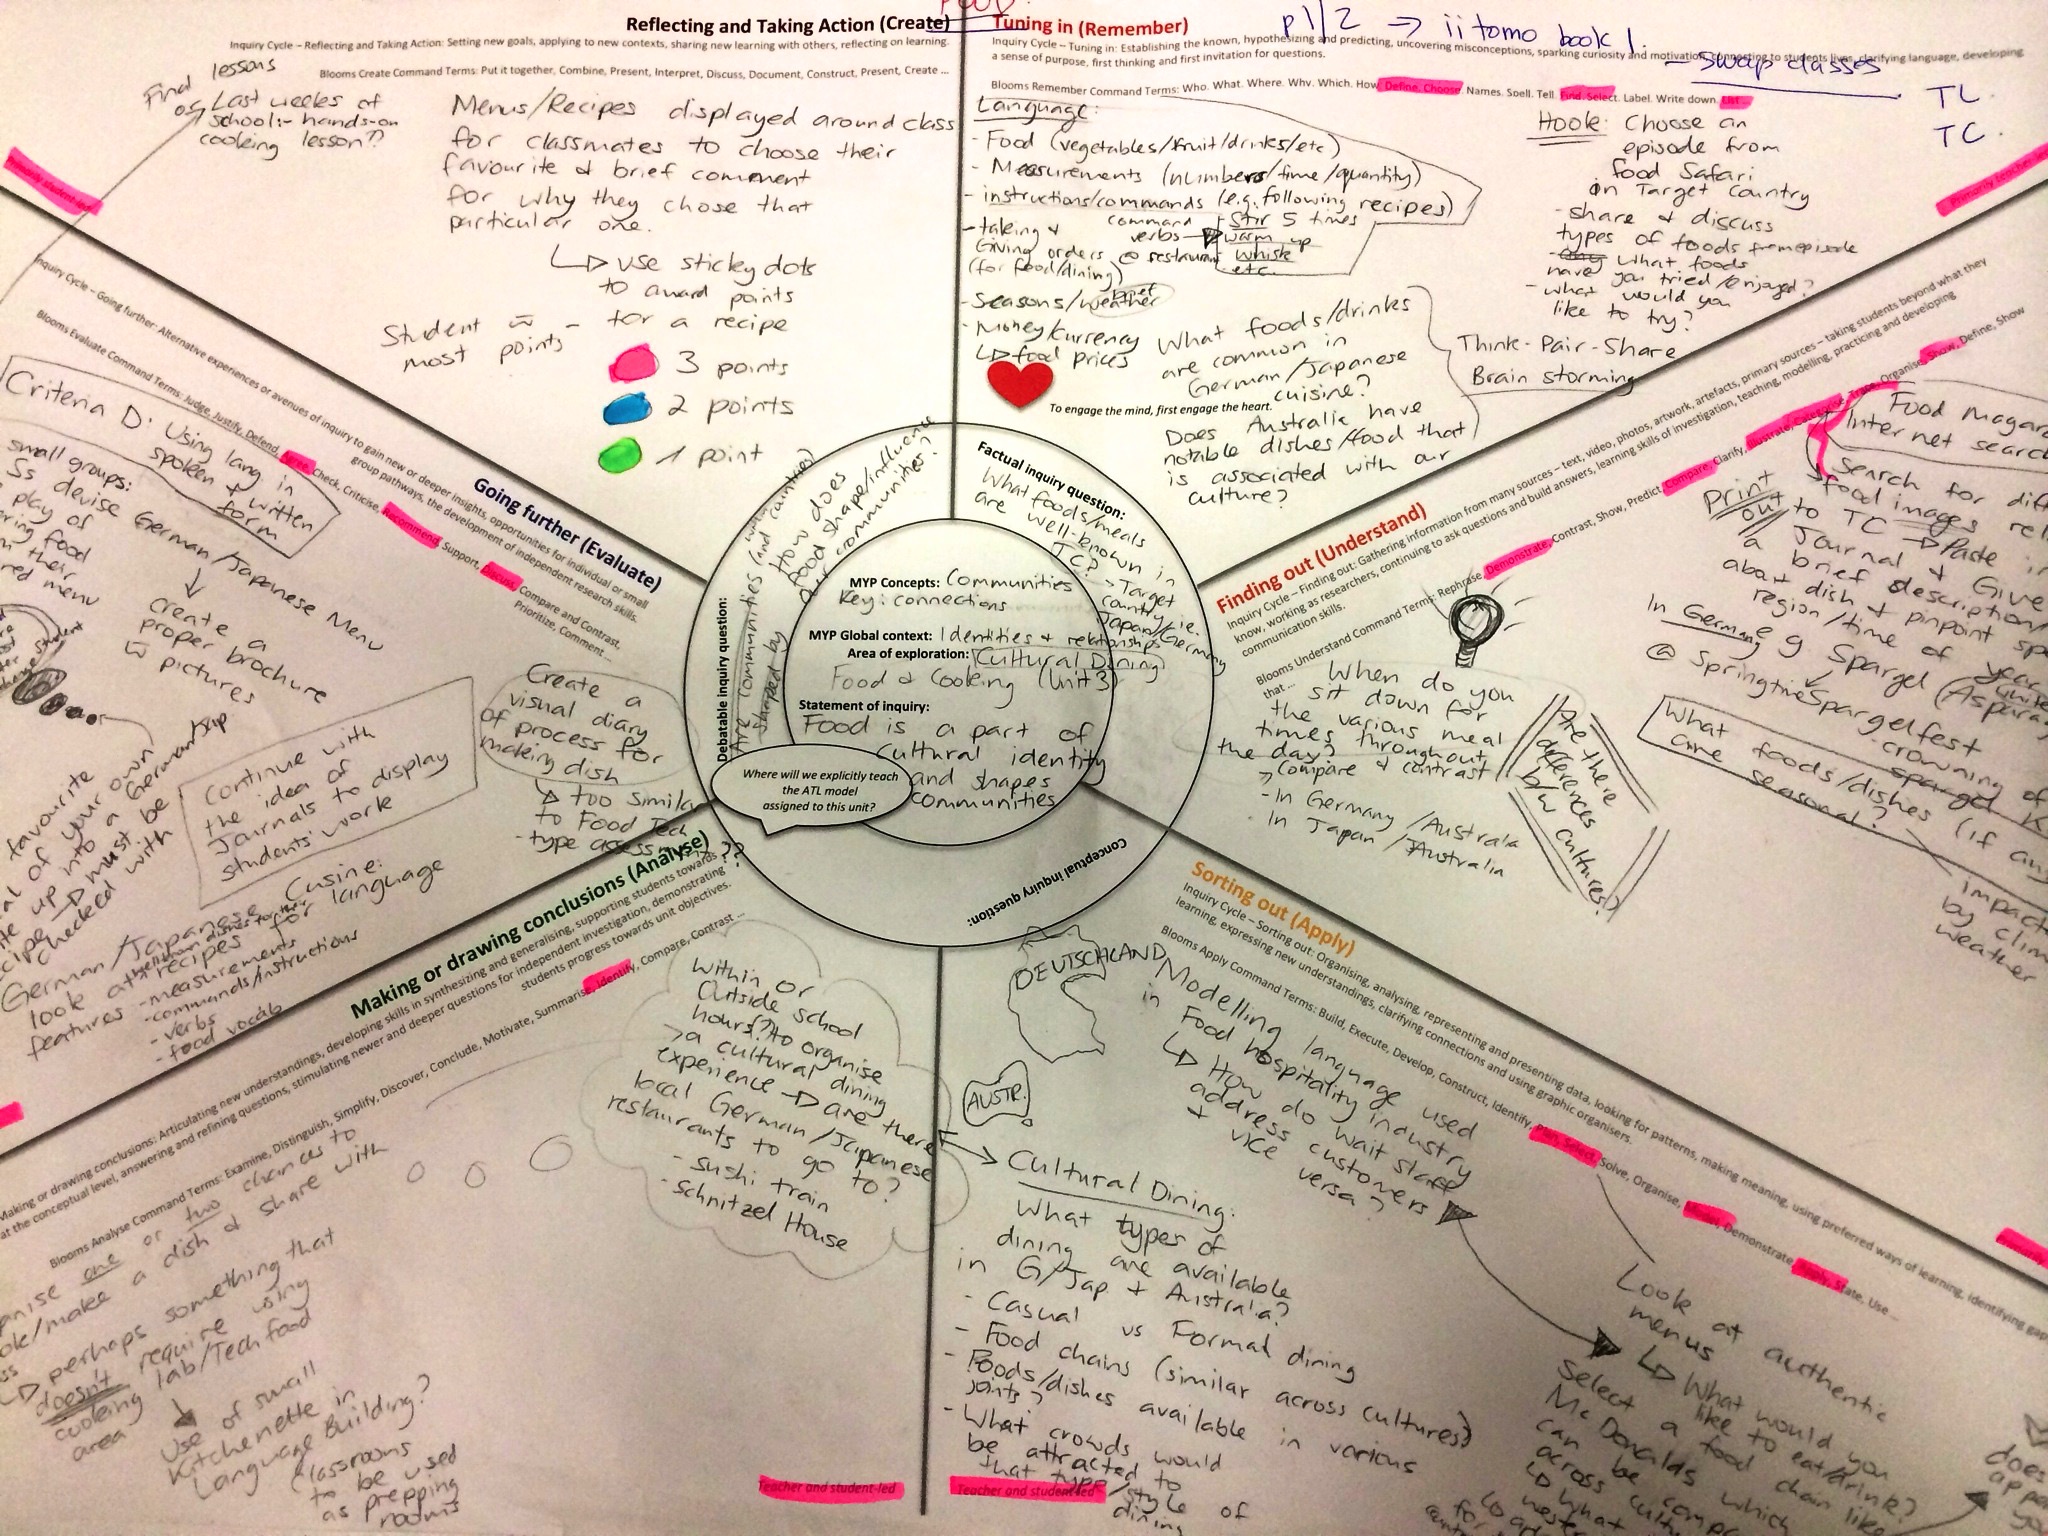 Reflecting and Taking Action (Create)
Inquiry Cycle – Reflecting and Taking Action: Setting new goals, applying to new contexts, sharing new learning with others, reflecting on learning.
Blooms Create Command Terms: Put it together, Combine, Present, Interpret, Discuss, Document, Construct, Present, Create ...
lessons
Last weeks of
school:- hands-on
cooking lesson?
Menus/Recipes displayed around class
for classmates to choose their
favourite & brief comment
for why they chose that
particular one.
↳ use sticky dots
to award points
for a recipe
Student w̄ –
most points
3 points
2 points
1 point
Tuning in (Remember)
p1/2 → ii tomo book 1.
- swap classes
TL.
TC.
Inquiry Cycle – Tuning in: Establishing the known, hypothesizing and predicting, uncovering misconceptions, sparking curiosity and motivation, connecting to students lives, clarifying language, developing
a sense of purpose, first thinking and first invitation for questions.
Blooms Remember Command Terms: Who. What. Where. Why. Which. How. Define, Choose. Names. Spell. Tell. Find. Select. Label. Write down. List ...
Language:
- Food (vegetables/fruit/drinks/etc)
- Measurements (numbers/time/quantity)
- instructions/commands (e.g. following recipes)
command
verbs
Stir 5 times
warm up
whisk
etc.
- taking &
Giving orders @ restaurant
(for food/dining)
- Seasons/weather
- Money/currency
↳ food prices
What foods/drinks
are common in
German/Japanese
cuisine?
To engage the mind, first engage the heart.
Does Australia have
notable dishes/food that
is associated with our
culture?
Think-Pair-Share
Brain storming
Hook: Choose an
episode from
food Safari
in Target Country
- share & discuss
types of foods from episode
- what foods
have you tried/enjoyed?
- what would you
like to try?
Finding out (Understand)
Inquiry Cycle – Finding out: Gathering information from many sources – text, video, photos, artwork, artefacts, primary sources – taking students beyond what they
know, working as researchers, continuing to ask questions and build answers, learning skills of investigation, teaching, modelling, practicing and developing
communication skills.
Blooms Understand Command Terms: Rephrase, Demonstrate, Contrast, Show, Predict, Compare, Clarify, Illustrate, Categorise, Trace, Organise, Show, Define, Show
that ...
Internet
Search for
food images
Print
out
to TC → Paste
Journal & Give
a brief description
about dish & pinpoint
region/time of year
In Germany
e.g. Spargel
@ Springtime
Spargelfest
- crowning of
What foods/dishes (if any)
are seasonal?
impact
by
weather
When do you
sit down for
the various meal
times throughout
the day?
→ Compare & contrast
- In Germany/Australia
- In Japan/Australia
Are there
differences
b/w cultures?
Sorting out (Apply)
Inquiry Cycle – Sorting out: Organising, analysing, representing and presenting data, looking for patterns, making meaning, using preferred ways of learning, identifying gaps
learning, expressing new understandings, clarifying connections and using graphic organisers.
Blooms Apply Command Terms: Build, Execute, Develop, Construct, Identify, Plan, Select, Solve, Organise, Model, Demonstrate, Apply, State, Use ...
DEUTSCHLAND
AUSTR.
Modelling language used
in Food hospitality industry
↳ How do wait staff
address customers
+ vice versa?
Cultural Dining:
What types of
dining are available
in G/Jap + Australia?
- Casual vs Formal dining
- Food chains (similar across cultures)
- Foods/dishes available in various
joints?
- What crowds would
be attracted to
that type/style of
dining
Look at authentic
menus
↳ What would you
like to eat/drink?
Select a food chain like
McDonalds which
can be
across
Teacher and student-led
Making or drawing conclusions (Analyse)
Making or drawing conclusions: Articulating new understandings, developing skills in synthesizing and generalising, supporting students towards
at the conceptual level, answering and refining questions, stimulating newer and deeper questions for independent investigation, demonstrating
students progress towards unit objectives.
Blooms Analyse Command Terms: Examine, Distinguish, Simplify, Discover, Conclude, Motivate, Summarise, Identify, Compare, Contrast ...
within or
Outside school
hours? to organise
→ a cultural dining
experience → are there
local German/Japanese
restaurants to go to?
- sushi train
- Schnitzel House
one or two chances to
make a dish & share with
↳ perhaps something that
doesn't require using
cooking lab/Tech food
area
Use of small
Kitchenette in
Language Building?
Classrooms
to be used
as prepping
rooms
Teacher and student-led
Going further (Evaluate)
Inquiry Cycle – Going further- Alternative experiences or avenues of inquiry to gain new or deeper insights, opportunities for individual or small
group pathways, the development of independent research skills.
Blooms Evaluate Command Terms: Judge, Justify, Defend, Argue, Check, Criticise, Recommend, Support, Discuss, Compare and Contrast,
Prioritize, Comment...
Criteria D: Using lang in
spoken & written
form
small groups:
Ss devise German/Japanese Menu
play of
food
their
menu
create a
proper brochure
w̄ pictures
Create a
visual diary
of process for
making dish
↳ too similar
to Food Tech
- type assessment??
Continue with
the idea of
Journals to display
students' work
favourite
of your own
up into a German/Jap
→ must be
checked with
German/Japanese Cusine:
look at recipes for language
features
- measurements
- commands/instructions
- verbs
- food vocab
Factual inquiry question:
What foods/meals
are well-known in
TC? → Target
country i.e.
Japan/Germany
Debatable inquiry question:
Are communities (and countries)
shaped by
How does
food shape/influence
our communities?
Conceptual inquiry question:
MYP Concepts: Communities
Key: connections
MYP Global context: Identities & relationships
Area of exploration: Cultural Dining
Food & Cooking (Unit 3)
Statement of inquiry:
Food is a part of
cultural identity
and shapes
communities
Where will we explicitly teach
the ATL model
assigned to this unit?